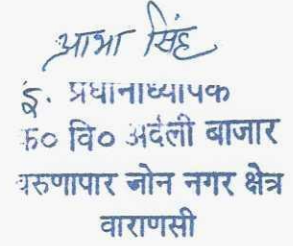 आभा सिंह
इ. प्रधानाध्यापक
क० वि० अर्दली बाजार
वरुणापार जोन नगर क्षेत्र
वाराणसी